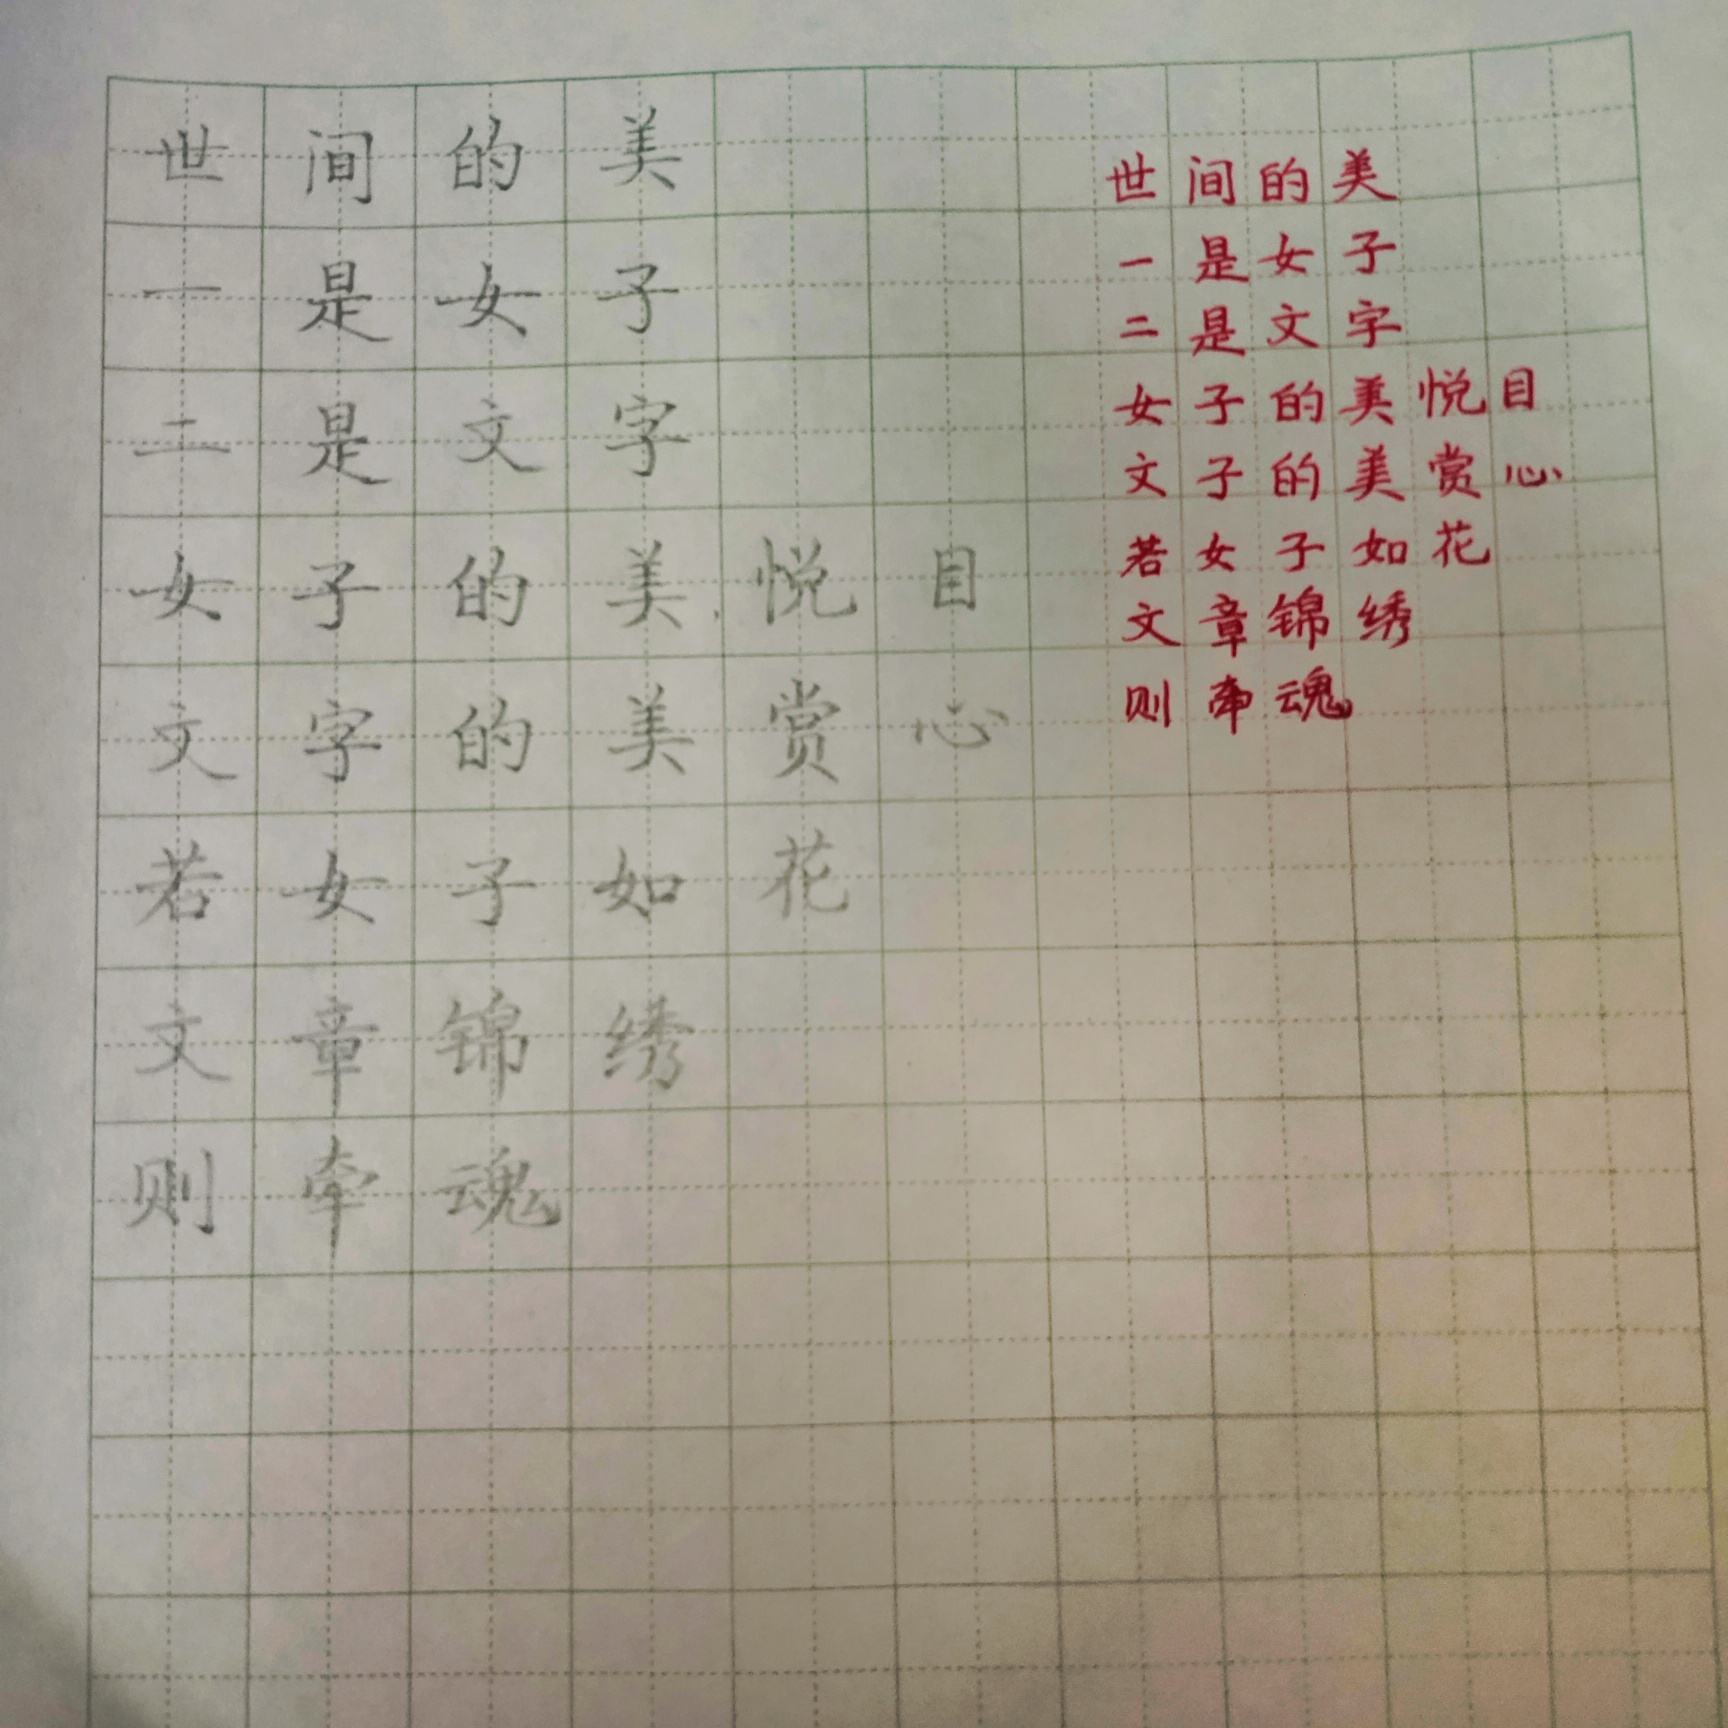 世间的美
一是女子
二是文字
女子的美悦目
文字的美赏心
若女子如花
文章锦绣
则牵魂
世间的美
一是女子
二是文字
女子的美悦目
文子的美赏心
若女子如花
文章锦绣
则牵魂